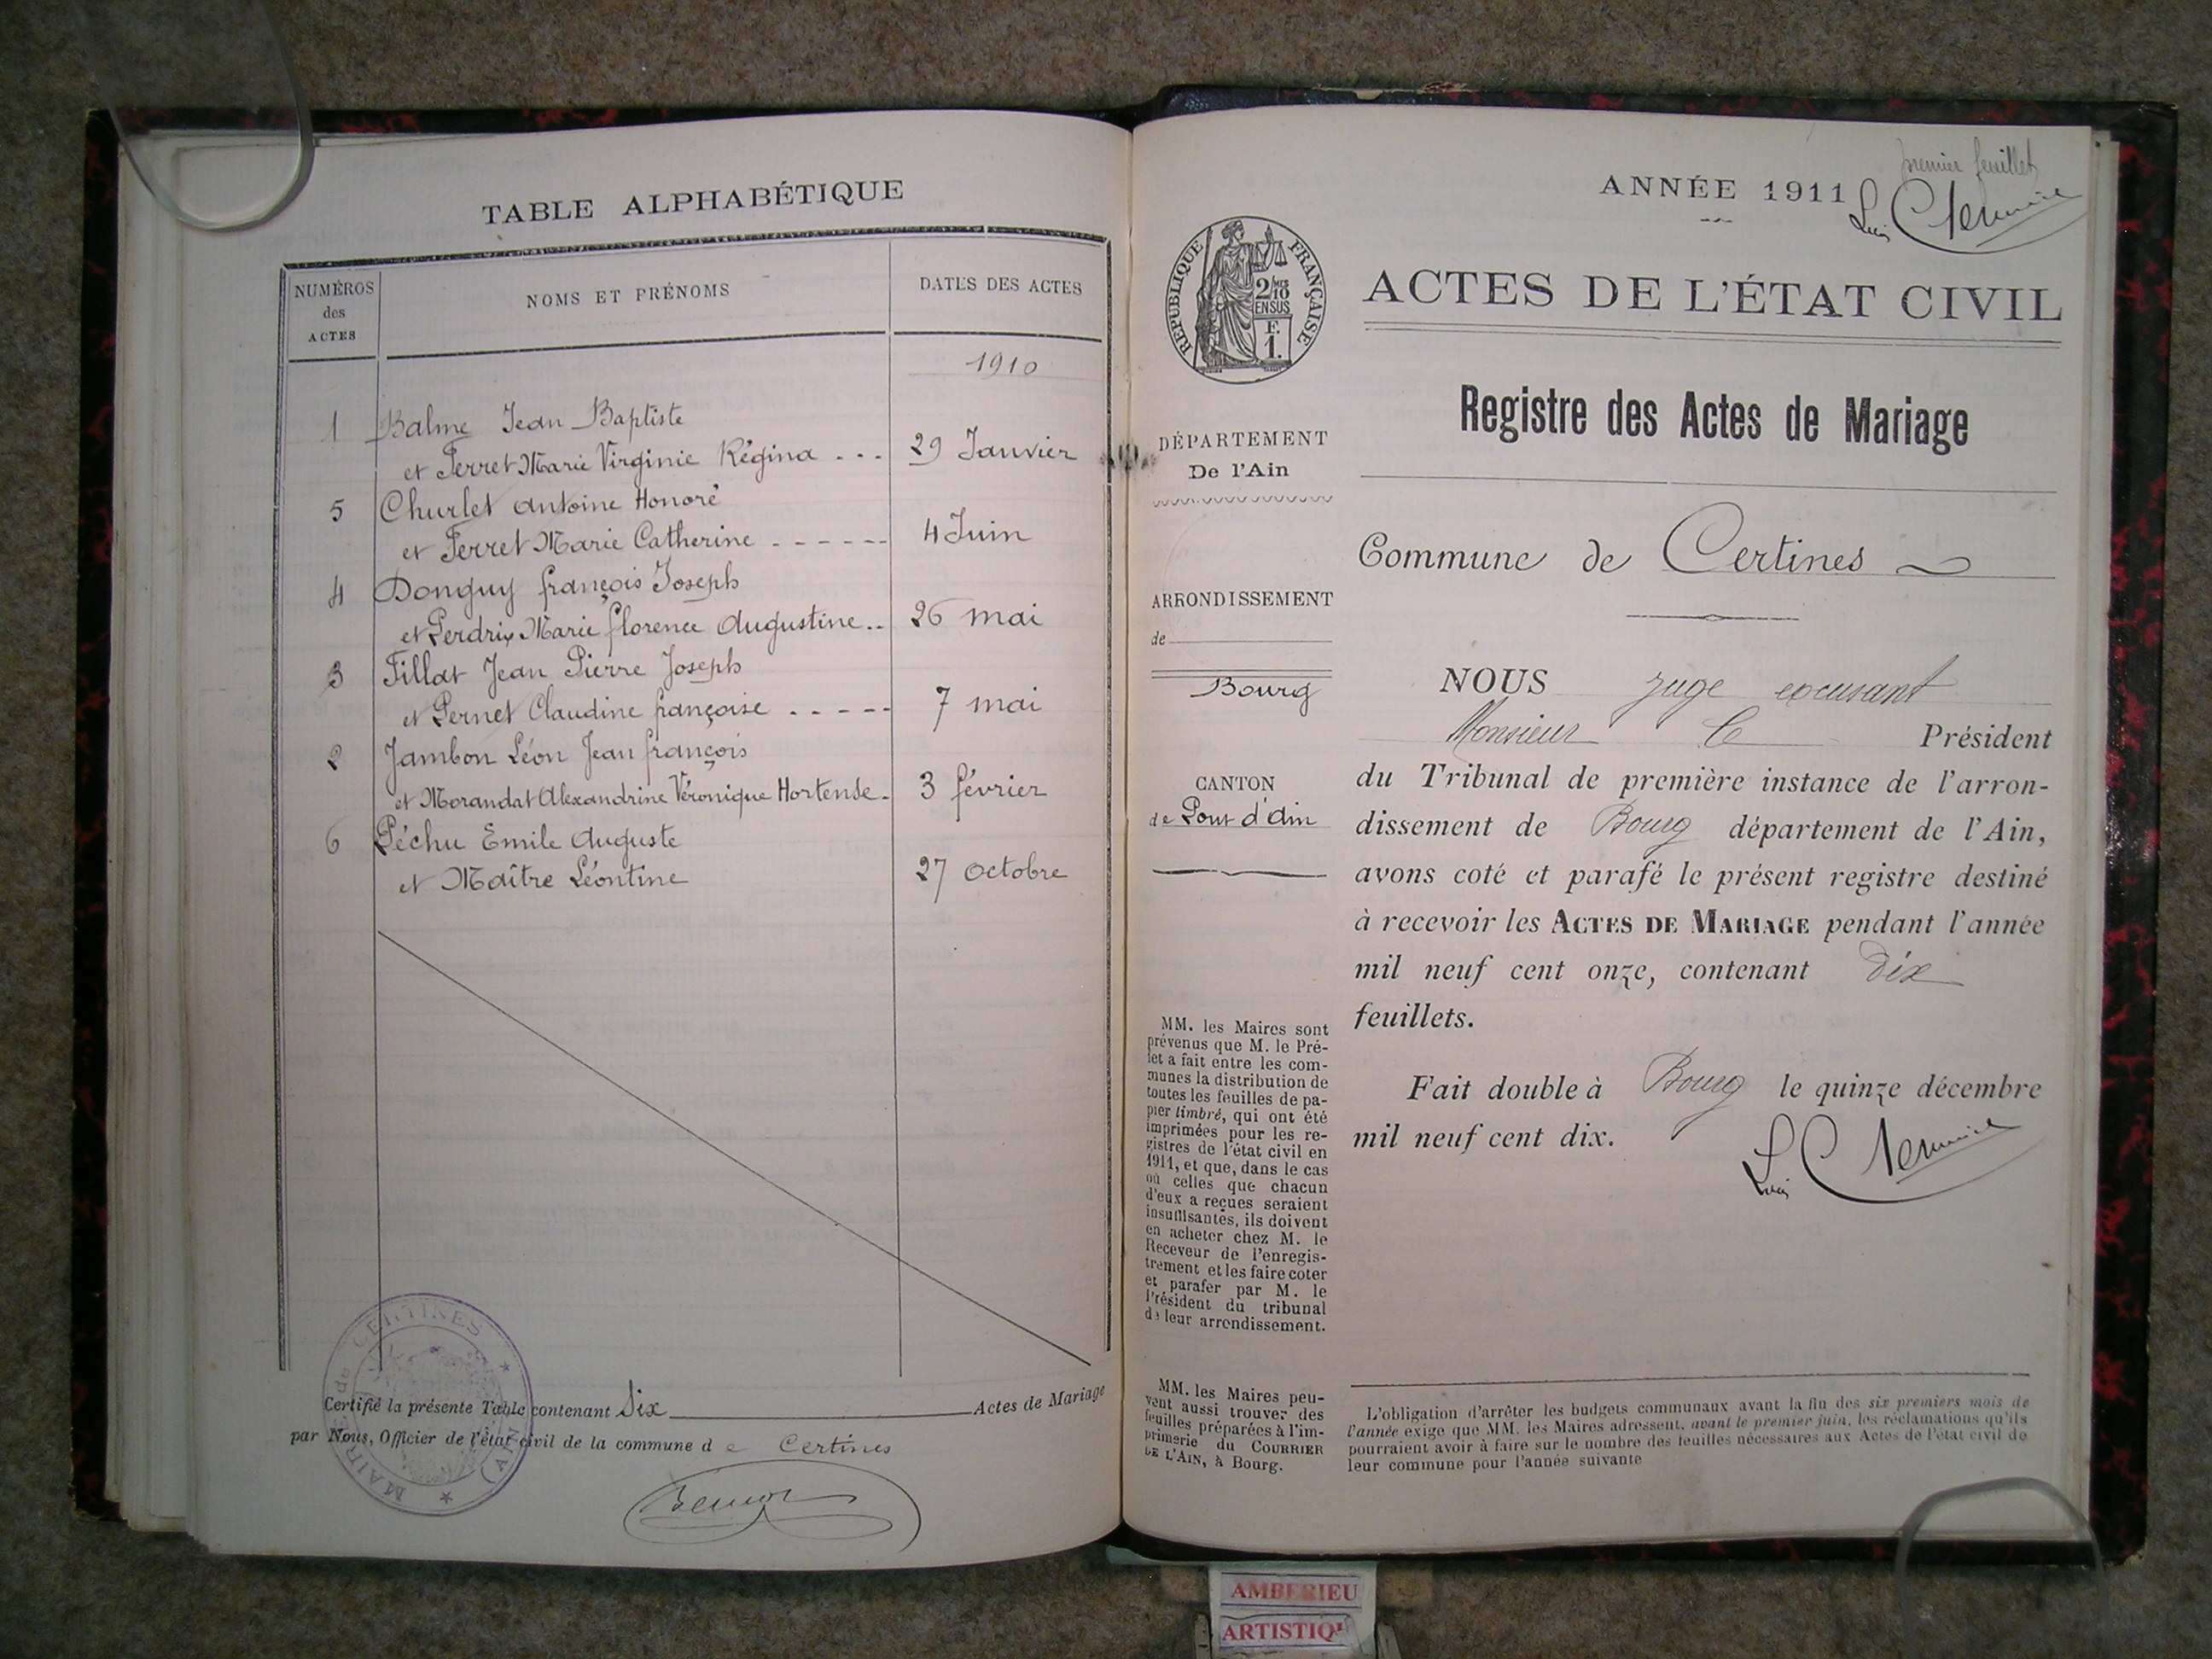 TABLE ALPHABÉTIQUE
NUMÉROS
des
ACTES
NOMS ET PRÉNOMS
DATES DES ACTES
1910
1 Balme Jean Baptiste
et Ferret Marie Virginie Régina ... 29 Janvier
5 Churlet Antoine Honoré
et Ferret Marie Catherine ------ 4 Juin
4 Donguy françois Joseph
et Perdrix Marie florence Augustine.. 26 mai
3 Fillat Jean Pierre Joseph
et Pernet Claudine françoise ----- 7 mai
2 Jambon Léon Jean françois
et Morandat Alexandrine Véronique Hortense. 3 février
6 Péchu Emile Auguste
et Maître Léontine 27 octobre
Certifié la présente Table contenant Six Actes de Mariage
par Nous, Officier de l'état civil de la commune de Certines
MAIRIE de CERTINES
(AIN)
premier feuillet
ANNÉE 1911
RÉPUBLIQUE FRANÇAISE
2/10
EN SUS
F.
1.
ACTES DE L'ÉTAT CIVIL
Registre des Actes de Mariage
DÉPARTEMENT
De l'Ain
ARRONDISSEMENT
de
Bourg
CANTON
de Pont d'Ain
MM. les Maires sont
prévenus que M. le Pré-
fet a fait entre les com-
munes la distribution de
toutes les feuilles de pa-
pier timbré, qui ont été
imprimées pour les re-
gistres de l'état civil en
1911, et que, dans le cas
où celles que chacun
d'eux a reçues seraient
insuffisantes, ils doivent
en acheter chez M. le
Receveur de l'enregis-
trement et les faire coter
et parafer par M. le
Président du tribunal
de leur arrondissement.
MM. les Maires peu-
vent aussi trouver des
feuilles préparées à l'im-
primerie du COURRIER
DE L'AIN, à Bourg.
Commune de Certines
NOUS juge excusant
Monsieur le Président
du Tribunal de première instance de l'arron-
dissement de Bourg département de l'Ain,
avons coté et parafé le présent registre destiné
à recevoir les ACTES DE MARIAGE pendant l'année
mil neuf cent onze, contenant dix
feuillets.
Fait double à Bourg le quinze décembre
mil neuf cent dix.
L'obligation d'arrêter les budgets communaux avant la fin des six premiers mois de
l'année exige que MM. les Maires adressent, avant le premier juin, les réclamations qu'ils
pourraient avoir à faire sur le nombre des feuilles nécessaires aux Actes de l'état civil de
leur commune pour l'année suivante
AMBERIEU
ARTISTIQ